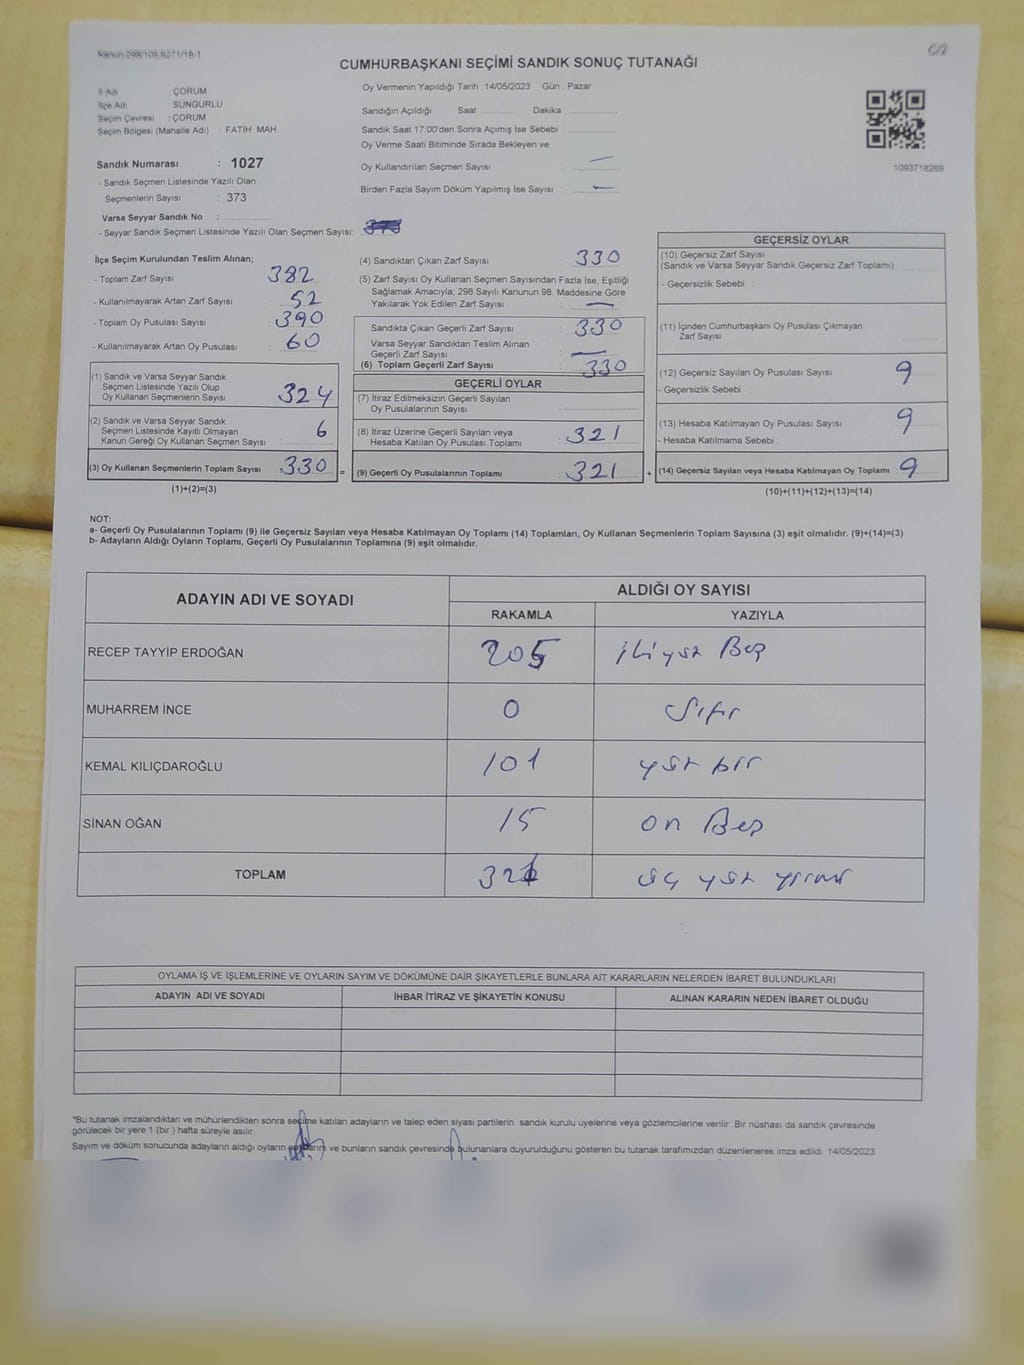 CUMHURBAŞKANI SEÇİMİ SANDIK SONUÇ TUTANAĞI
C/2
İl Adı : ÇORUM
İlçe Adı : SUNGURLU
Seçim Çevresi : ÇORUM
Seçim Bölgesi (Mahalle Adı) : FATİH MAH.
Sandık Numarası : 1027
- Sandık Seçmen Listesinde Yazılı Olan
Seçmenlerin Sayısı : 373
Varsa Seyyar Sandık No :
- Seyyar Sandık Seçmen Listesinde Yazılı Olan Seçmen Sayısı:
Oy Vermenin Yapıldığı Tarih :14/05/2023 Gün : Pazar
Sandığın Açıldığı Saat Dakika :
Sandık Saat 17:00'den Sonra Açımış İse Sebebi :
Oy Verme Saati Bitiminde Sırada Bekleyen ve
Oy Kullandırılan Seçmen Sayısı : —
Birden Fazla Sayım Döküm Yapılmış İse Sayısı : —
1093718269
İlçe Seçim Kurulundan Teslim Alınan;
- Toplam Zarf Sayısı : 382
- Kullanılmayarak Artan Zarf Sayısı : 52
- Toplam Oy Pusulası Sayısı : 390
- Kullanılmayarak Artan Oy Pusulası : 60
(1) Sandık ve Varsa Seyyar Sandık
Seçmen Listesinde Yazılı Olup
Oy Kullanan Seçmenlerin Sayısı : 324
(2) Sandık ve Varsa Seyyar Sandık
Seçmen Listesinde Kayıtlı Olmayan
Kanun Gereği Oy Kullanan Seçmen Sayısı : 6
(3) Oy Kullanan Seçmenlerin Toplam Sayısı : 330
(1)+(2)=(3)
(4) Sandıktan Çıkan Zarf Sayısı : 330
(5) Zarf Sayısı Oy Kullanan Seçmen Sayısından Fazla İse, Eşitliği
Sağlamak Amacıyla, 298 Sayılı Kanunun 98. Maddesine Göre
Yakılarak Yok Edilen Zarf Sayısı : —
Sandıkta Çıkan Geçerli Zarf Sayısı : 330
Varsa Seyyar Sandıktan Teslim Alınan
Geçerli Zarf Sayısı : —
(6) Toplam Geçerli Zarf Sayısı : 330
GEÇERLİ OYLAR
(7) İtiraz Edilmeksizin Geçerli Sayılan
Oy Pusulalarının Sayısı :
(8) İtiraz Üzerine Geçerli Sayılan veya
Hesaba Katılan Oy Pusulası Toplamı : 321
= (9) Geçerli Oy Pusulalarının Toplamı : 321
GEÇERSİZ OYLAR
(10) Geçersiz Zarf Sayısı
(Sandık ve Varsa Seyyar Sandık Geçersiz Zarf Toplamı)
- Geçersizlik Sebebi :
(11) İçinden Cumhurbaşkanı Oy Pusulası Çıkmayan
Zarf Sayısı :
(12) Geçersiz Sayılan Oy Pusulası Sayısı : 9
- Geçersizlik Sebebi :
(13) Hesaba Katılmayan Oy Pusulası Sayısı : 9
- Hesaba Katılmama Sebebi :
+ (14) Geçersiz Sayılan veya Hesaba Katılmayan Oy Toplamı : 9
(10)+(11)+(12)+(13)=(14)
NOT:
a- Geçerli Oy Pusulalarının Toplamı (9) ile Geçersiz Sayılan veya Hesaba Katılmayan Oy Toplamı (14) Toplamları, Oy Kullanan Seçmenlerin Toplam Sayısına (3) eşit olmalıdır. (9)+(14)=(3)
b- Adayların Aldığı Oyların Toplamı, Geçerli Oy Pusulalarının Toplamına (9) eşit olmalıdır.
ADAYIN ADI VE SOYADI
ALDIĞI OY SAYISI
RAKAMLA YAZIYLA
RECEP TAYYİP ERDOĞAN 205 ikiyüz Beş
MUHARREM İNCE 0 Sıfır
KEMAL KILIÇDAROĞLU 101 yüz bir
SİNAN OĞAN 15 on Beş
TOPLAM 321 üç yüz yirmi
OYLAMA İŞ VE İŞLEMLERİNE VE OYLARIN SAYIM VE DÖKÜMÜNE DAİR ŞİKAYETLERLE BUNLARA AİT KARARLARIN NELERDEN İBARET BULUNDUKLARI
ADAYIN ADI VE SOYADI İHBAR İTİRAZ VE ŞİKAYETİN KONUSU ALINAN KARARIN NEDEN İBARET OLDUĞU
*Bu tutanak imzalandıktan ve mühürlendikten sonra seçime katılan adayların ve talep eden siyasi partilerin sandık kurulu üyelerine veya gözlemcilerine verilir. Bir nüshası da sandık çevresinde
görülecek bir yere 1 (bir ) hafta süreyle asılır.
Sayım ve döküm sonucunda adayların aldığı oyların ve bunların sandık çevresinde bulunanlara duyurulduğunu gösteren bu tutanak tarafımızdan düzenlenerek imza edildi. 14/05/2023